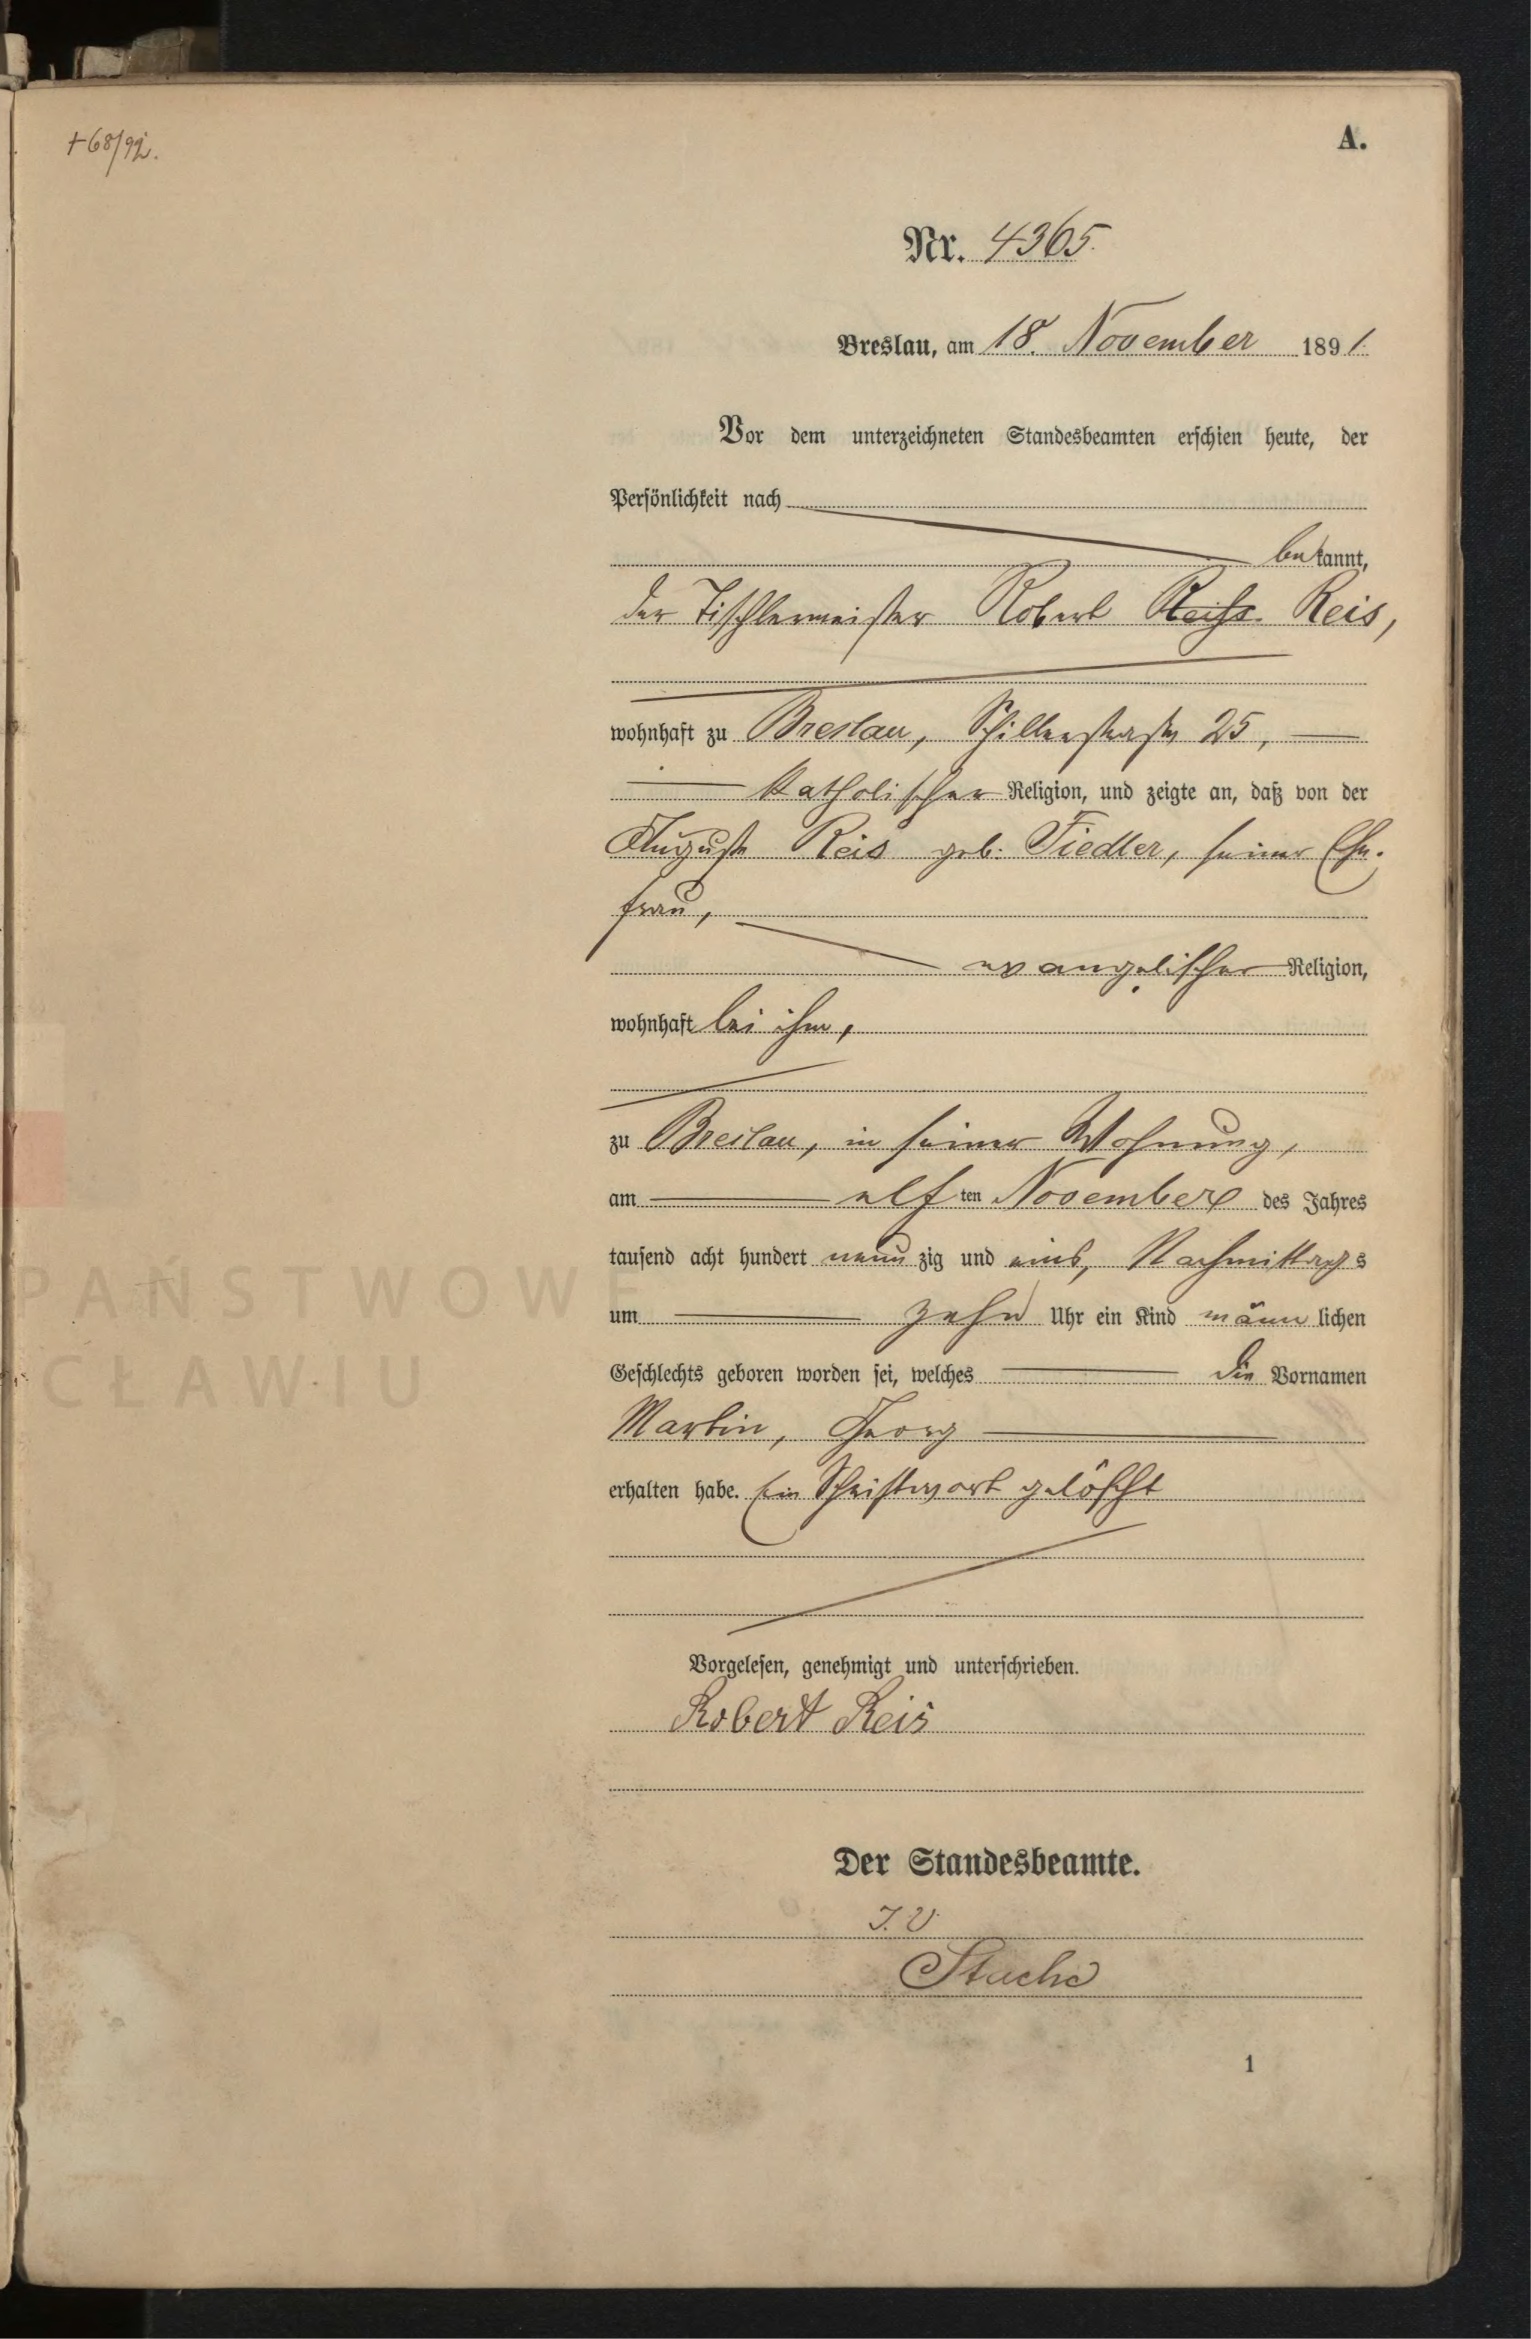 +68/92.
A.
Nr. 4365.
Breslau, am 18. November 1891.
Vor dem unterzeichneten Standesbeamten erschien heute, der
Persönlichkeit nach
bekannt,
der Tischlermeister Robert Reiss Reis,
wohnhaft zu Breslau, Schillerstraße 25,
katholischer Religion, und zeigte an, daß von der
Auguste Reis geb. Fiedler, seiner Ehe-
frau,
evangelischer Religion,
wohnhaft bei ihm,
zu Breslau, in seiner Wohnung,
am elften November des Jahres
tausend acht hundert neunzig und eins, Nachmittags
um zehn Uhr ein Kind männlichen
Geschlechts geboren worden sei, welches die Vornamen
Martin, Georg
erhalten habe. Ein Schriftwort gelöscht
Vorgelesen, genehmigt und unterschrieben.
Robert Reis
Der Standesbeamte.
J. V.
Stache
1
PAŃSTWOWE
CŁAWIU